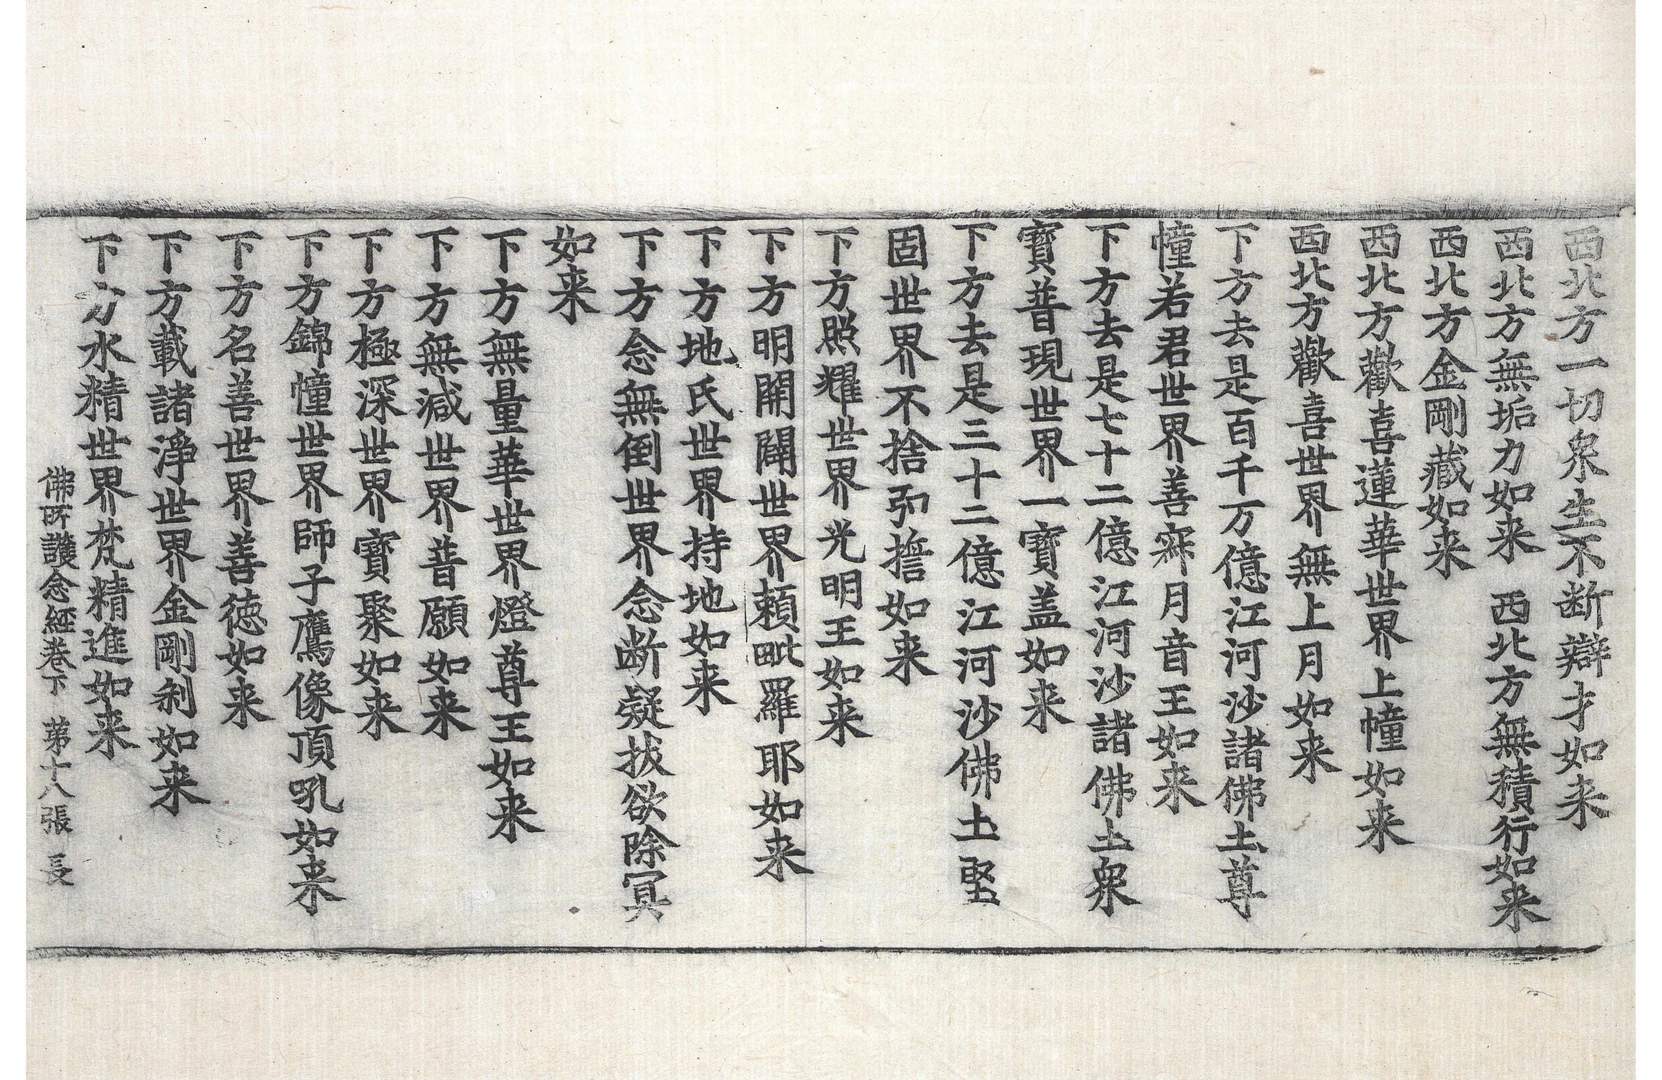 西北方一切衆生不断辯才如来
西北方無垢力如来　西北方無積行如来
西北方金剛藏如来
西北方歡喜蓮華世界上幢如来
西北方歡喜世界無上月如来
下方去是百千万億江河沙諸佛土尊
幢若君世界善寂月音王如来
下方去是七十二億江河沙諸佛土衆
寶普現世界一寶盖如来
下方去是三十二億江河沙佛土堅
固世界不捨弘誓如来
下方照耀世界光明王如来
下方明開闢世界頼毗羅耶如来
下方地氏世界持地如来
下方念無倒世界念断疑拔欲除冥
如来
下方無量華世界燈尊王如来
下方無減世界普願如来
下方極深世界寶聚如来
下方錦幢世界師子鷹像頂吼如来
下方名善世界善徳如来
下方載諸淨世界金剛刹如来
下方水精世界梵精進如来
佛所護念經卷下　苐十八張　長